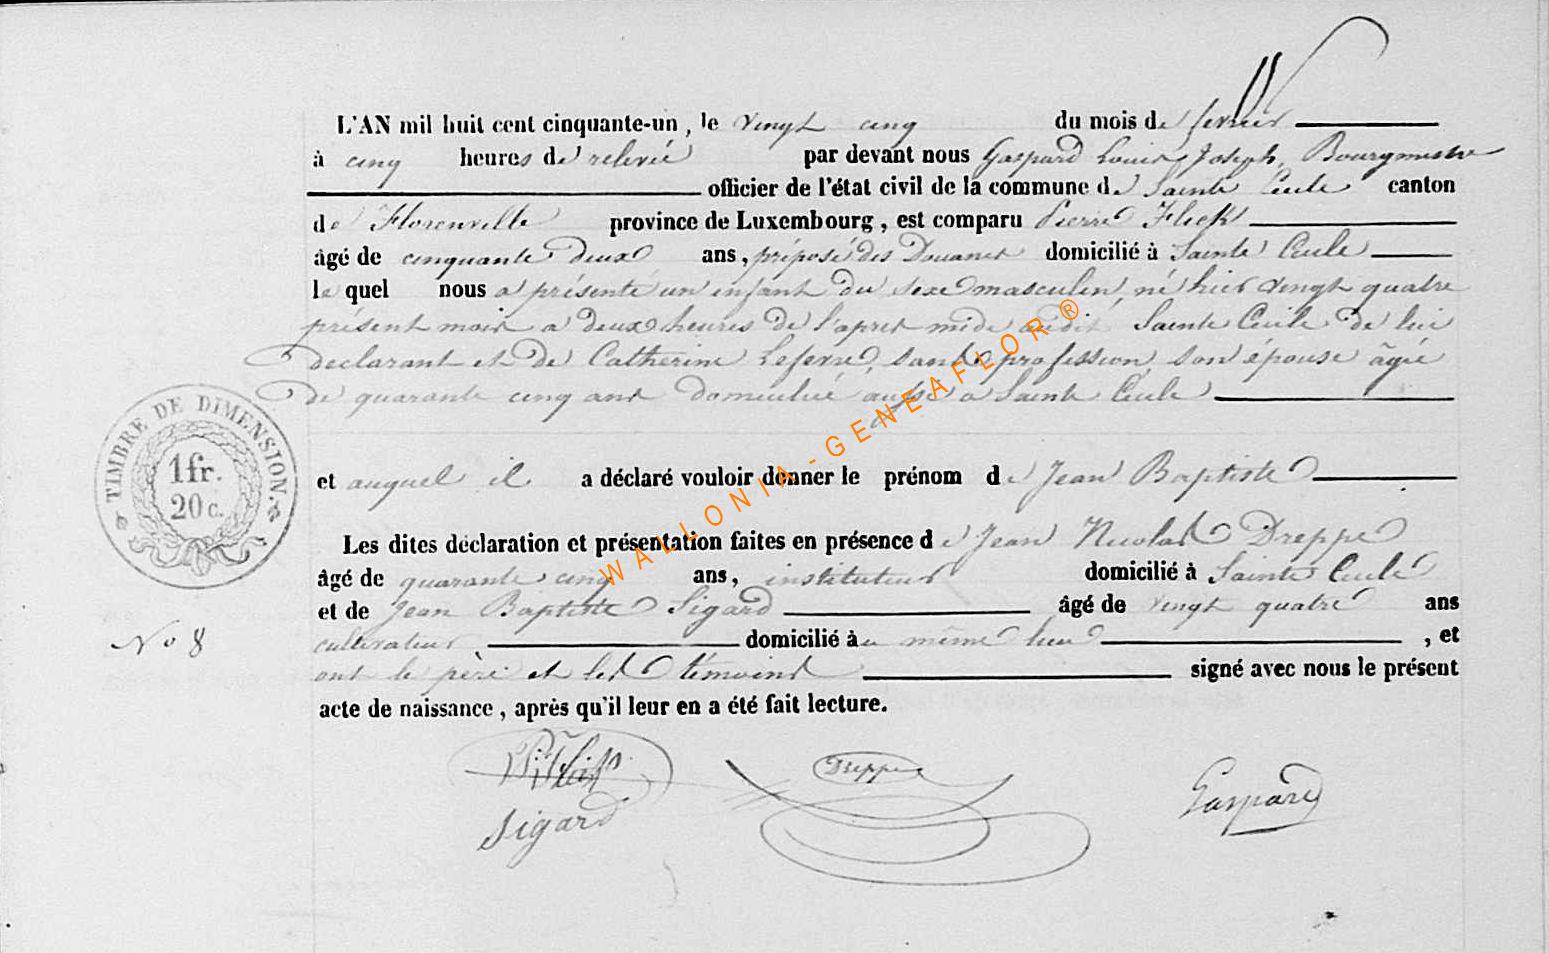 L'AN mil huit cent cinquante-un, le vingt cinq du mois de fevrier
à cinq heures de relevée par devant nous Gaspard Louis Joseph, Bourgmestre
officier de l'état civil de la commune de Sainte Cecile canton
de Florenville province de Luxembourg, est comparu Pierre Flick
âgé de cinquante deux ans, préposé des Douanes domicilié à Sainte Cecile
le quel nous a présenté un enfant du sexe masculin, né hier vingt quatre
présent mois a deux heures de l'apres midi audit Sainte Cecile de lui
declarant et de Catherine Lefevre, sans profession, son épouse âgée
de quarante cinq ans domiciliée aussi a Sainte Cecile
et auquel il a déclaré vouloir donner le prénom de Jean Baptiste
Les dites déclaration et présentation faites en présence de Jean Nicolas Dreppe
âgé de quarante cinq ans, instituteur domicilié à Sainte Cecile
et de Jean Baptiste Sigard âgé de vingt quatre ans
cultivateur domicilié au même lieu, et
ont le père et les témoins signé avec nous le présent
acte de naissance, après qu'il leur en a été fait lecture.
TIMBRE DE DIMENSION.
1 fr.
20 c.
No 8
Dreppe
Sigard
Gaspard
WALLONIA-GENEAFLOR®